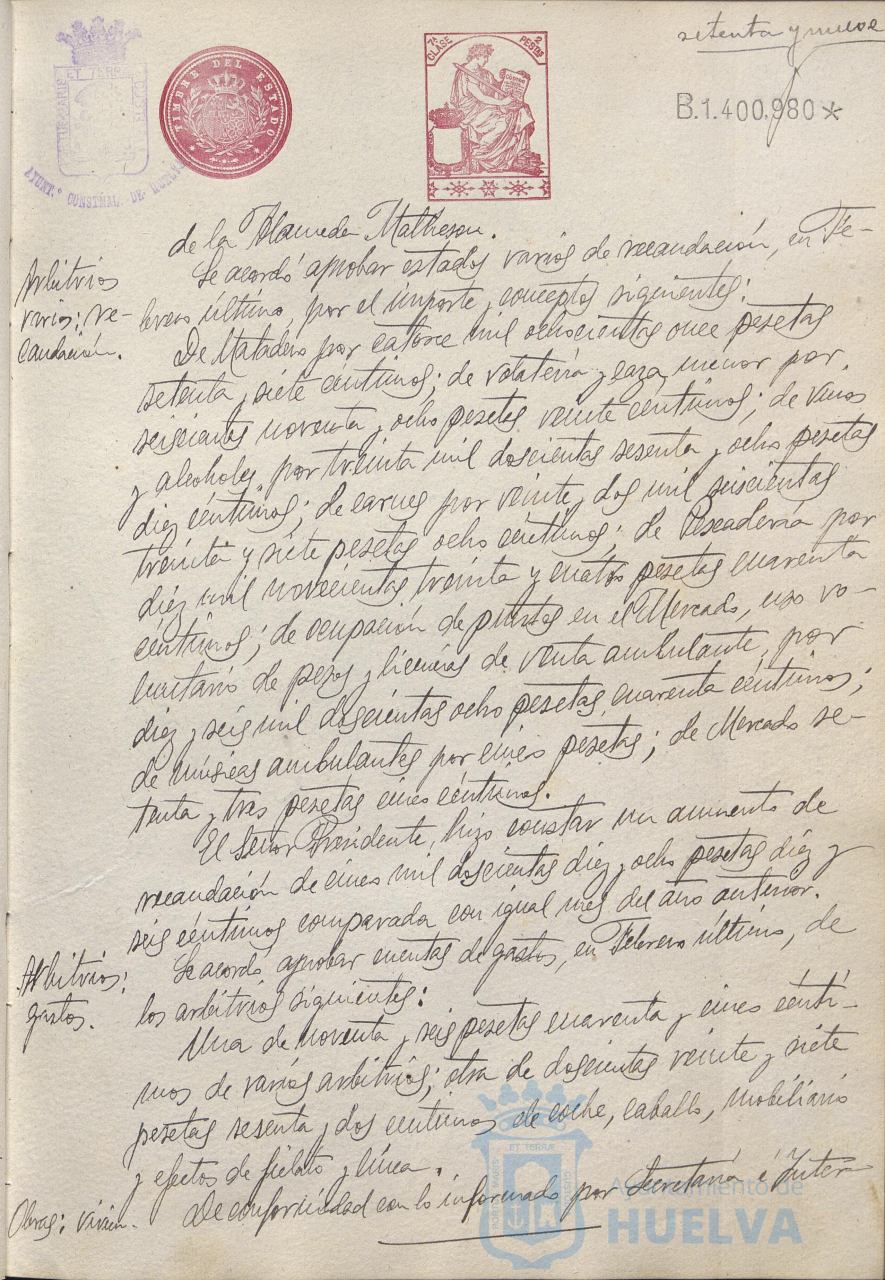 setenta y nueve
ET TERRAE
AYUNT.º CONSTNAL. DE HUELVA
TIMBRE DEL ESTADO
7ª CLASE
2 PESTAS
B.1.400.980*
de la Alameda Matheson.
Arbitrios
varios: re-
caudación.
Se acordó aprobar estados varios de recaudación, en Fe-
brero último, por el importe y conceptos siguientes:
De Matadero por catorce mil ochocientas once pesetas
setenta y siete céntimos; de volatería y caza menor por
seiscientas noventa y ocho pesetas veinte céntimos; de vinos
y alcoholes, por treinta mil doscientas sesenta y ocho pesetas
diez céntimos; de carnes por veinte y dos mil seiscientas
treinta y siete pesetas ocho céntimos; de Pescadería por
diez mil novecientas treinta y cuatro pesetas cuarenta
céntimos; de ocupación de puestos en el Mercado, uso vo-
luntario de pesas y licencias de venta ambulante, por
diez y seis mil doscientas ocho pesetas cuarenta céntimos;
de músicas ambulantes por cinco pesetas; de Mercado se-
tenta y tres pesetas cinco céntimos.
El Señor Presidente, hizo constar un aumento de
recaudación de cinco mil doscientas diez y ocho pesetas diez y
seis céntimos comparada con igual mes del año anterior.
Arbitrios:
gastos.
Se acordó aprobar cuentas de gastos, en Febrero último, de
los arbitrios siguientes:
Una de noventa y seis pesetas cuarenta y cinco cénti-
mos de varios arbitrios; otra de doscientas veinte y siete
pesetas sesenta y dos centimos de coche, caballo, mobiliario
y efectos de fielato y línea.
Obras: vivien.
De conformidad con lo informado por Secretaría é Inter
Ayuntamiento de
HUELVA